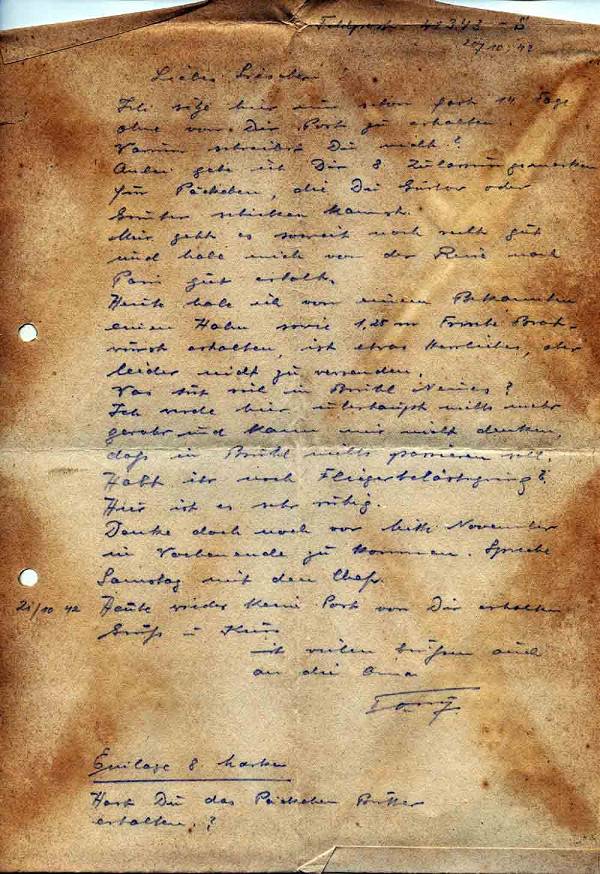 Feldpost 42343 - B
20/10. 42
Liebes Lieschen!
Ich sitze hier nun schon fast 14 Tage
ohne von Dir Post zu erhalten.
Warum schreibst Du nicht?
Anbei gebe ich Dir 8 Zulassungsmarken
für Päckchen, die Du oder
schicken kannst.
Mir geht es soweit noch recht gut
und habe mich von der Reise nach
Paris gut erholt.
Heute habe ich von einem Bekannten
einen Hahn sowie 1,25 m Frische Brat-
wurst erhalten, ist etwas Herrliches, aber
leider nicht zu versenden.
Was tut sich in Brühl Neues?
Ich werde hier überhaupt nichts mehr
gewahr und kann mir nicht denken,
dass in Brühl nichts passieren soll.
Habt ihr noch Fliegerbelästigung?
Hier ist es sehr ruhig.
Denke doch noch vor Mitte November
in Wochenende zu kommen. Spreche
Samstag mit dem Chef.
21/10 42 Heute wieder keine Post von Dir erhalten
Gruß u Kuss
mit vielen Grüßen auch
an die Oma
Tony
Einlage 8 Marken
Hast Du das Päckchen Butter
erhalten.?